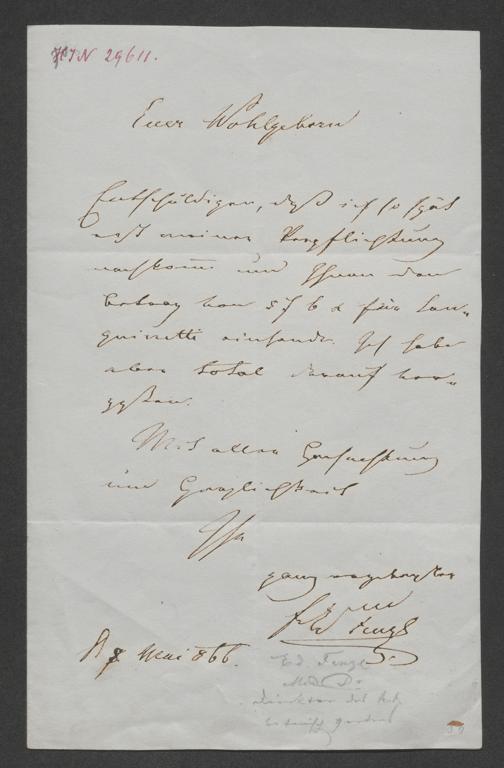 HIN 29611.
Euer Wohlgeborn
Entschuldigen, daß ich so spät
erst meiner Verpflichtung
nachkomme und Ihnen den
Betrag von 5 f 6 x für
einsende. Ich habe
aber total darauf ver-
gessen.
Mit aller Hochachtung
und Herzlichkeit
Ihr
ganz ergebenster
Ed Fenzl
8 Mai 866.
Ed. Fenzl
Med. Dr.
Direktor des k.k.
botanisch garten